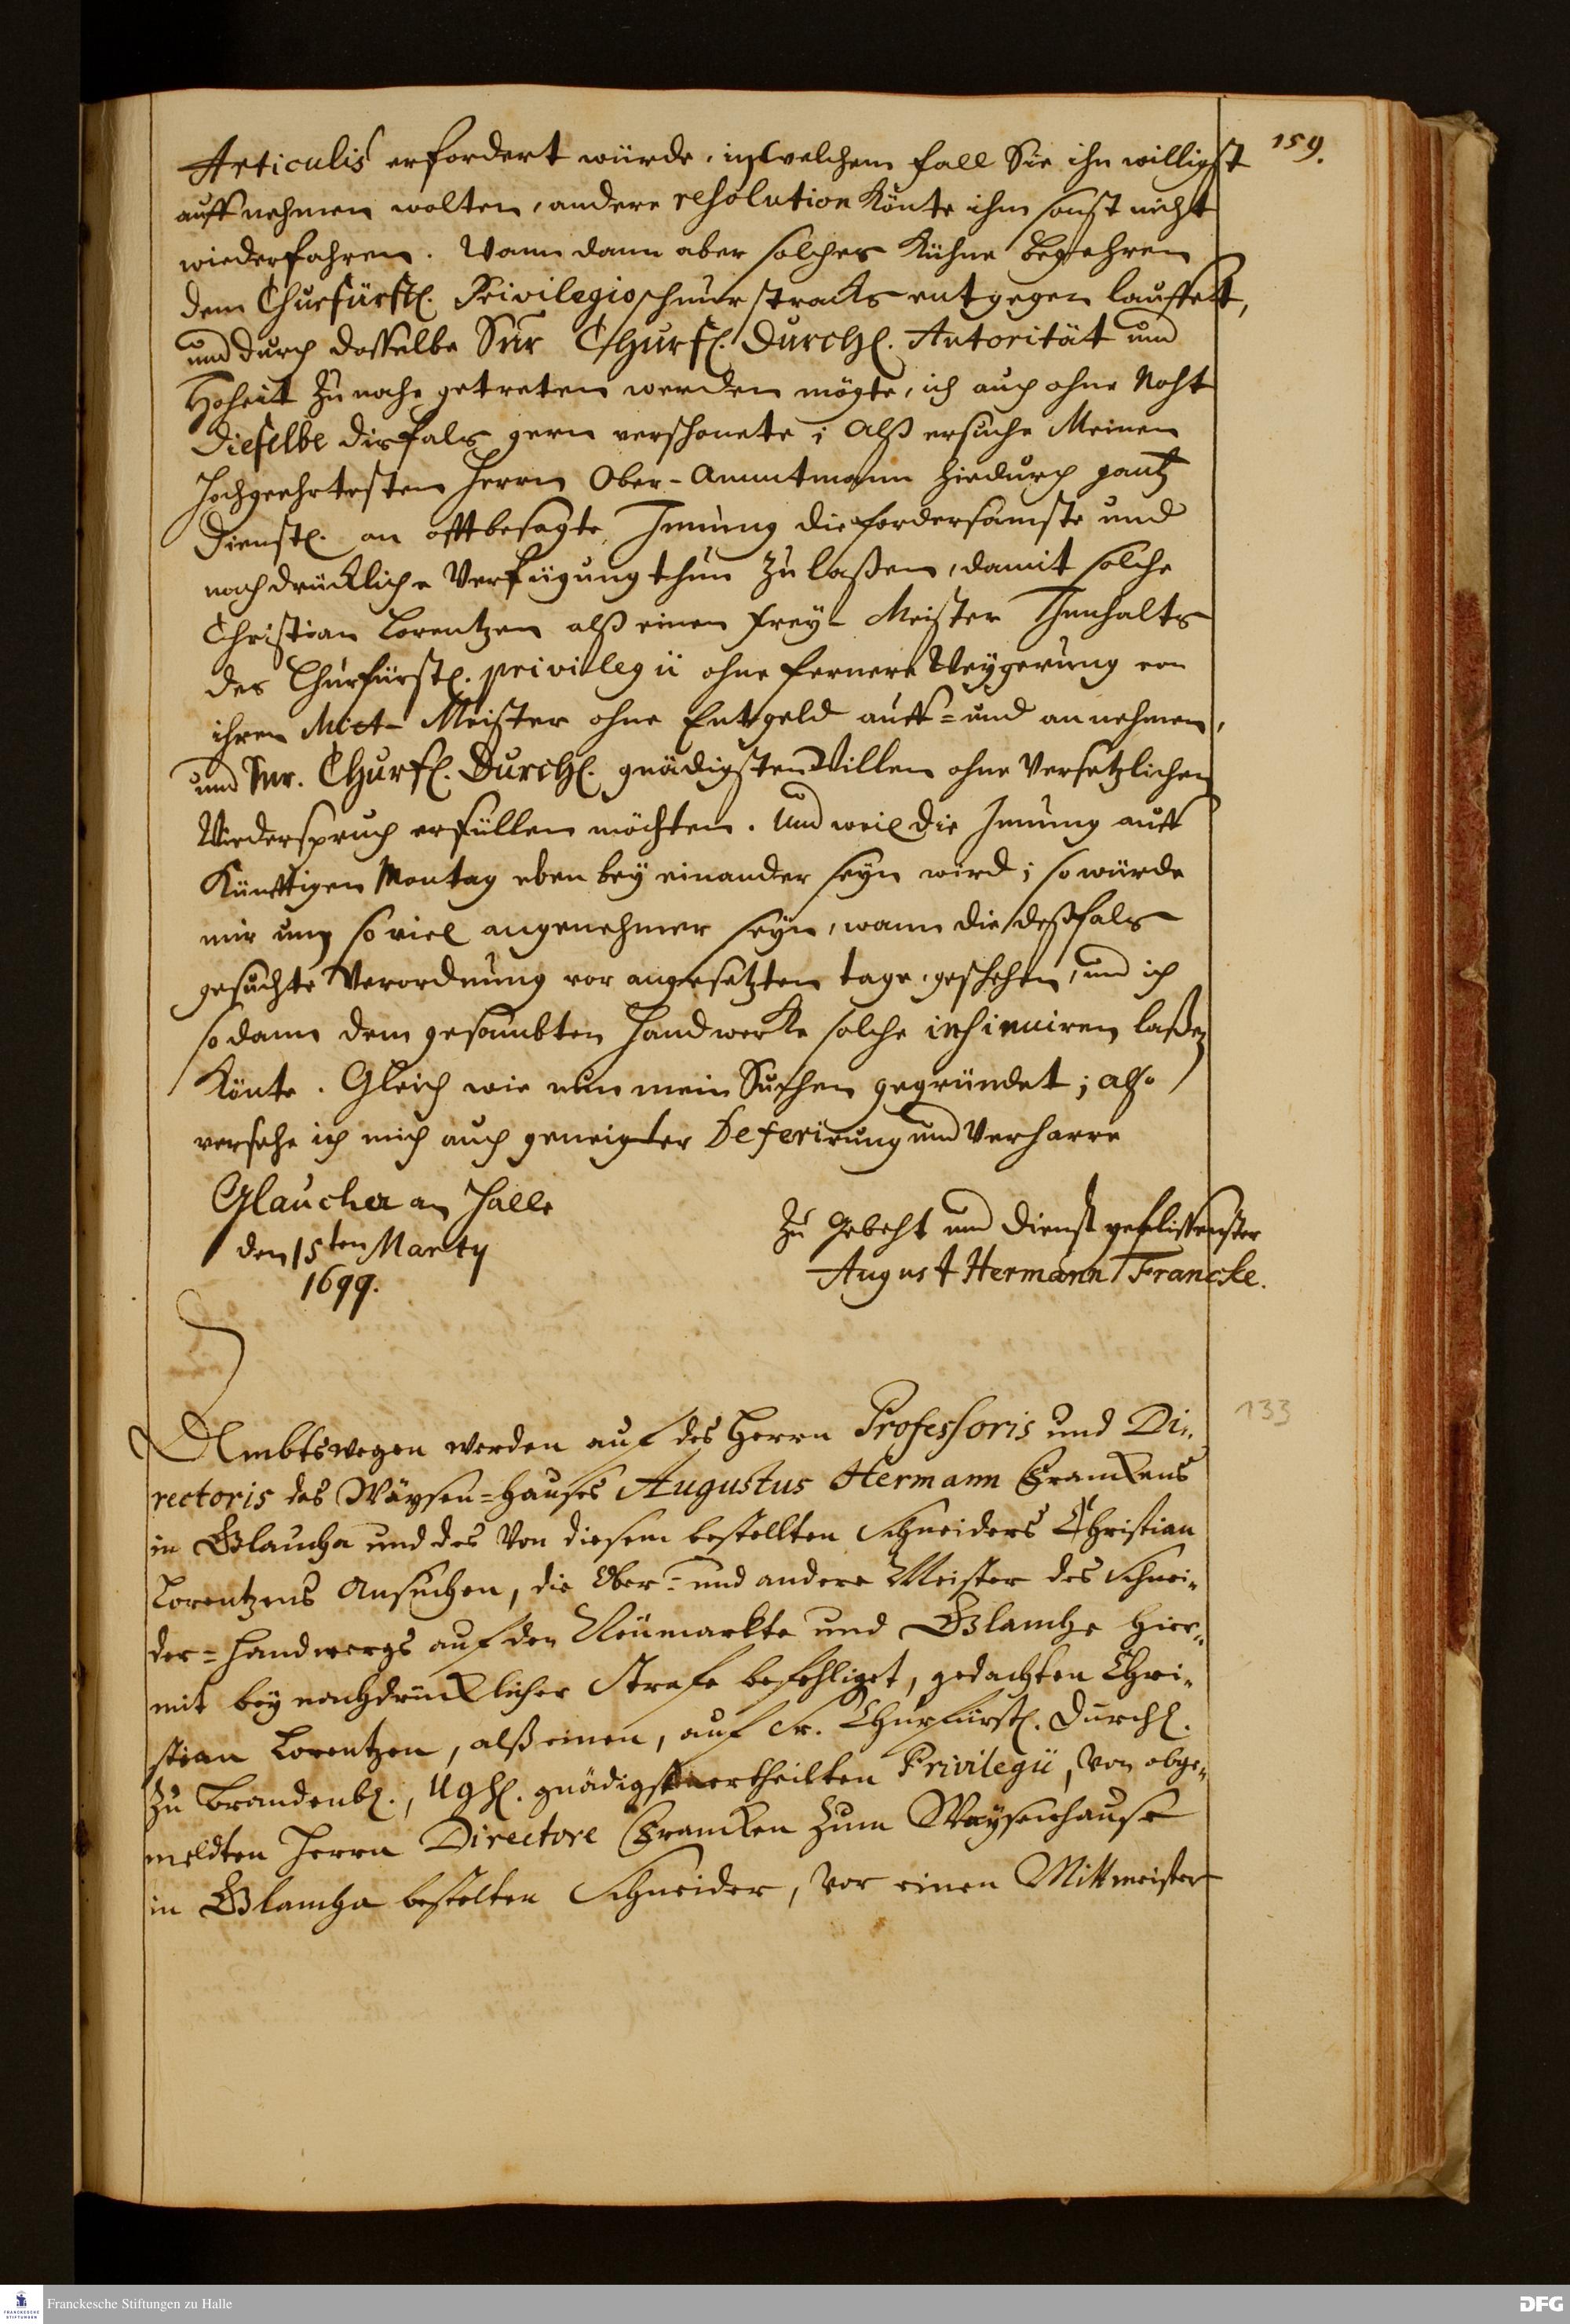 159.
Articulis erfordert würde, in welchem fall Sie ihn willigst
auffnehmen wolten, andere resolution könte ihm sonst nicht
wiederfahren. Wann dann aber solches kühne begehren
dem Churfürstl. Privilegio schnurstracks entgegen lauffet,
und durch dasselbe Sr. Churfl. Durchl. Autorität und
Hoheit zu nahe getreten werden mögte, ich auch ohne Noht
dieselbe disfals gern verschonete; Alß ersuche Meinen
Hochgeehrtesten Herrn Ober-Ammtmann hiedurch gantz
dienstl. an offtbesagte Innung die fordersamste und
nachdrückliche Verfügung thun zu laßen, damit solche
Christian Lorentzen alß einen Frey-Meister Innhalts
des Churfürstl. privilegii ohne fernere Weygerung vor
ihren Mit-Meister ohne Entgeld auff- und annehmen,
und Sr. Churfl. Durchl. gnädigsten Willen ohne Versetzlichen
Wiederspruch erfüllen möchten. Und weil die Innung auff
künfftigen Montag eben bey einander seyn wird; so würde
mir umb so viel angenehmer seyn, wann die deßfals
gesuchte Verordnung vor angesetzten tage geschehen, und ich
sodann dem gesambten Handwerke solche insinuiren laßen
könte. Gleich wie nun mein Suchen gegründet; also
versehe ich mich auch geneigter Deferirung und Verharre
Glaucha an Halle
den 15ten Marty
1699.
Zu Gebeht und Dienst geflissenster
August Hermann Francke.
133
Ambtswegen werden auf des Herrn Professoris und Di-
rectoris des Wäysen-Hauses Augustus Hermann Franckens
in Glaucha und des von diesem bestellten Schneiders Christian
Lorentzens Ansuchen, die Ober- und andere Meister des Schnei-
der-Handwergs auf den Neumarkte und Glaucha hier-
mit bey nachdrücklicher Strafe befehliget, gedachten Chri-
stian Lorentzen, alß einen, auf Sr. Churfürstl. Durchl.
zu Brandenb., Ugh. gnädigst ertheilten Privilegii, von obge-
meldten Herrn Directore Francken zum Waysenhause
in Glaucha bestelten Schneider, vor einen Mittmeister
Franckesche Stiftungen zu Halle
DFG